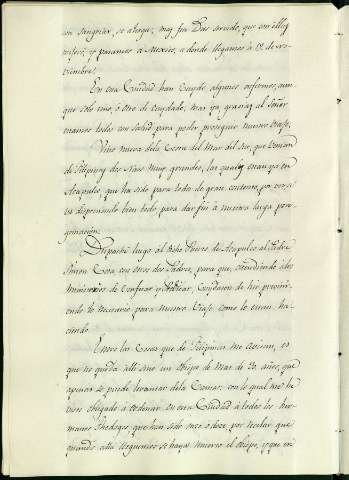 con sangrias, se alargue, muy fue Dios servido, que con ellas
, y paramos a Mexico, a donde llegamos a 12 de no-
viembre.
En esta Ciudad han caydo algunos enfermos, aun-
que solo uno, o otro de cuydado, mas ya, gracias al Señor
estamos todos con salud para poder proseguir nuestro Viage.
Vino nueva de la Costa del Mar del Sur, que venian
de Filipinas dos Naos muy grandes, las quales estan ya en
Acapulco, que ha sido para todos de gran contento, por
va disponiendo bien todo para dar fin a nuestra larga pere-
grinacion.
Despaché luego al dicho Puerto de Acapulco al Padre
Simon Cota, con otros dos Padres, para que, atendiendo a los
ministerios de Confesar y Predicar, Cuydasen de ir previni-
endo lo necesario para nuestro Viage, como lo estan ha-
ciendo.
Entre las Cosas que de Filipinas me avisan, es
que no queda alli sino un Obispo de mas de 70 años, que
apenas se puede levantar de la Cama; con lo qual me tu-
viera obligado a ordenar en esta Ciudad a todos los her-
manos Theologos, que han sido once o doce por recelar que
quando alla lleguemos se haya muerto el Obispo, y que en